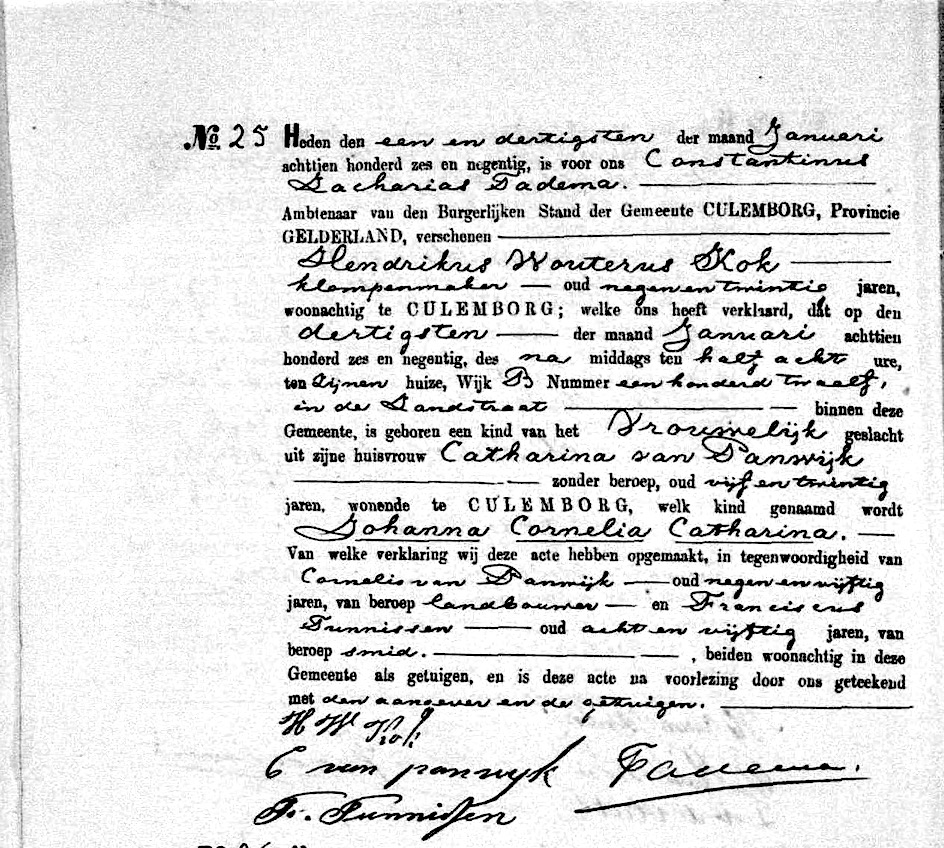 No. 25 Heden den een en dertigsten der maand Januari
achttien honderd zes en negentig, is voor ons Constantinus
Zacharias Tadema.
Ambtenaar van den Burgerlijken Stand der Gemeente CULEMBORG, Provincie
GELDERLAND, verschenen
Hendrikus Wouterus Kok
klompenmaker oud negen en twintig jaren,
woonachtig te CULEMBORG; welke ons heeft verklaard, dat op den
dertigsten der maand Januari achttien
honderd zes en negentig, des na middags ten half acht ure,
ten zijnen huize, Wijk B Nummer een honderd twaalf,
in de Zandstraat binnen deze
Gemeente, is geboren een kind van het Vrouwelijk geslacht
uit zijne huisvrouw Catharina van Panwijk
zonder beroep, oud vijf en twintig
jaren, wonende te CULEMBORG, welk kind genaamd wordt
Johanna Cornelia Catharina.
Van welke verklaring wij deze acte hebben opgemaakt, in tegenwoordigheid van
Cornelis van Panwijk oud negen en vijftig
jaren, van beroep landbouwer en Franciscus
Tunnissen oud acht en vijftig jaren, van
beroep smid. , beiden woonachtig in deze
Gemeente als getuigen, en is deze acte na voorlezing door ons geteekend
met den aangever en de getuigen.
H W Kok
C van panwyk Tadema.
Fr. Tunnissen